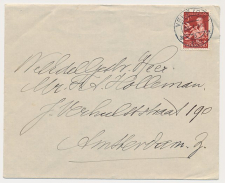 Weledelgestr. Heer
Mr. A. J. Holleman
J. Verhulststraat 190
Amsterdam. Z.